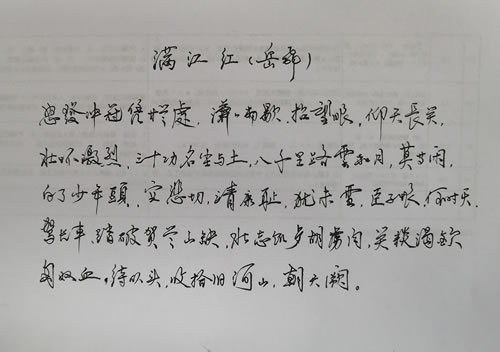 满江红（岳飛）
怒發冲冠凭栏處，潇々雨歇，抬望眼，仰天長关，
壮怀激烈，三十功名尘与土，八千里路雲和月，莫等闲，
白了少年頭，空悲切，靖康耻，犹未雪，臣子恨，何时灭，
驾长車，踏破贺兰山缺，壮志饥歺胡虏肉，关談渴飲
匈奴血，待从头，收拾旧河山，朝天阙。